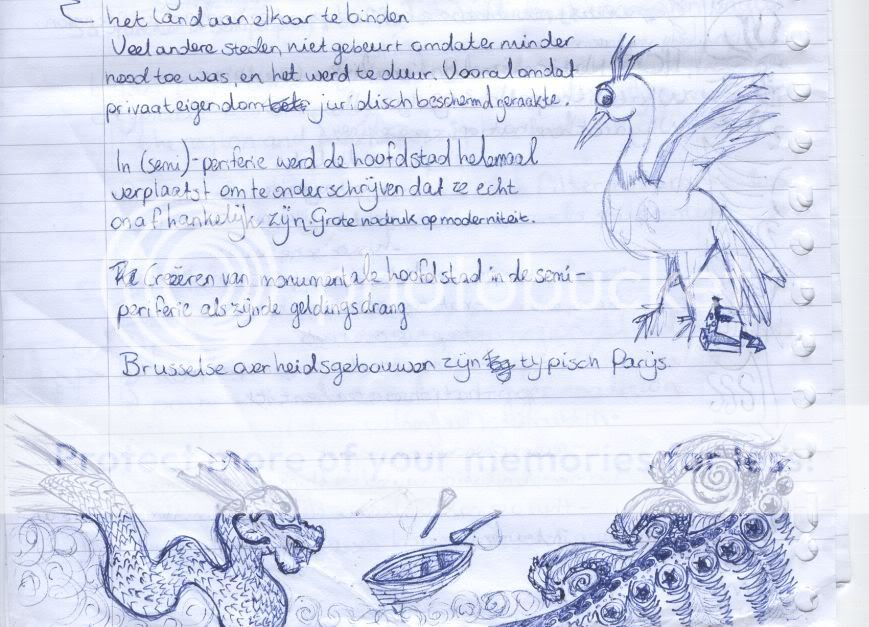 het land aan elkaar te binden
Veel andere steden niet gebeurt omdat er minder
nood toe was, en het werd te duur. Vooral omdat
privaat eigendom juridisch beschermd geraakte.
In (semi)-periferie werd de hoofdstad helemaal
verplaatst om te onderschrijven dat ze echt
onafhankelijk zijn. Grote nadruk op moderniteit.
Creëren van monumentale hoofdstad in de semi-
periferie als zijnde geldingsdrang
Brusselse overheidsgebouwen zijn typisch Parijs.
photobucket
Protect more of your memories for less!